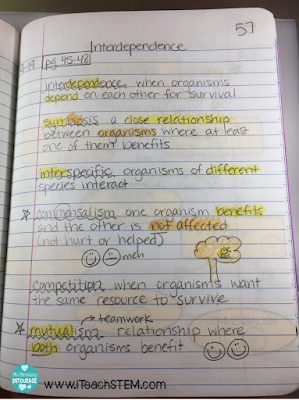 57
Interdependence
pg 45-48
interdependence when organisms
depend on each other for survival
symbiosis a close relationship
between organisms where at least
one of them benefits
interspecific organisms of different
species interact
commensalism one organism benefits
and the other is not affected
(not hurt or helped)
meh
competition when organisms want
the same resource to survive
teamwork
mutualism relationship where
both organisms benefit
ENTOURAGE
www.iTeachSTEM.com